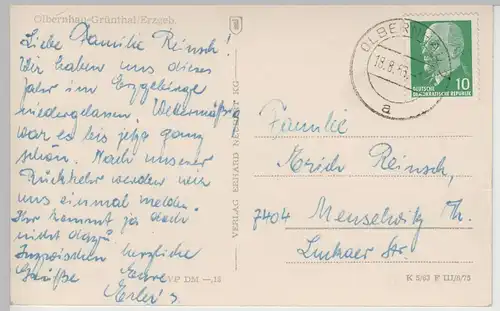 Olbernhau-Grünthal/Erzgeb.
Liebe Familie Reinsch!
Wir haben uns dieses
Jahr im Erzgebirge
niedergelassen. Wettermäßig
war es bis jetzt ganz
schön. Nach unserer
Rückkehr werden wir
uns einmal melden.
Ihr kommt ja doch
nicht dazu.
Inzwischen herzliche
Grüße Eure
VERLAG ERHARD NEUBERT KG
DM -,15
OLBERNHAU
18.8.65
a
10
DEUTSCHE
DEMOKRATISCHE REPUBLIK
Familie
Erich Reinsch,
7404 Meuselwitz Th.
Luckaer Str.
K 5/63 F III/6/73